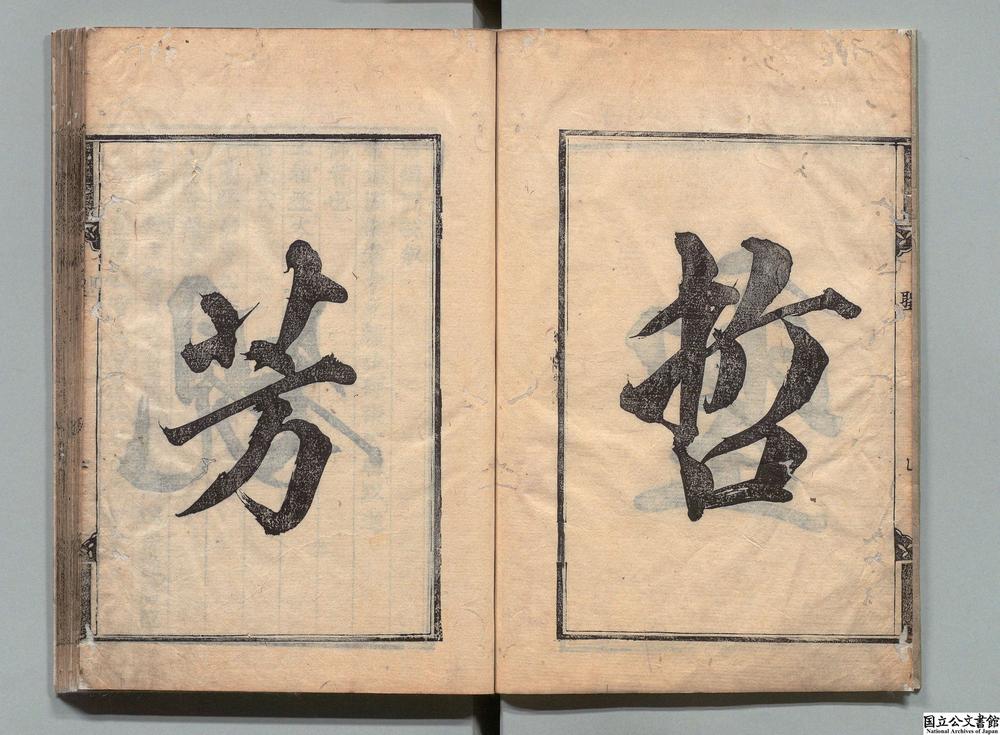 哲
芳
聖
国立公文書館
National Archives of Japan